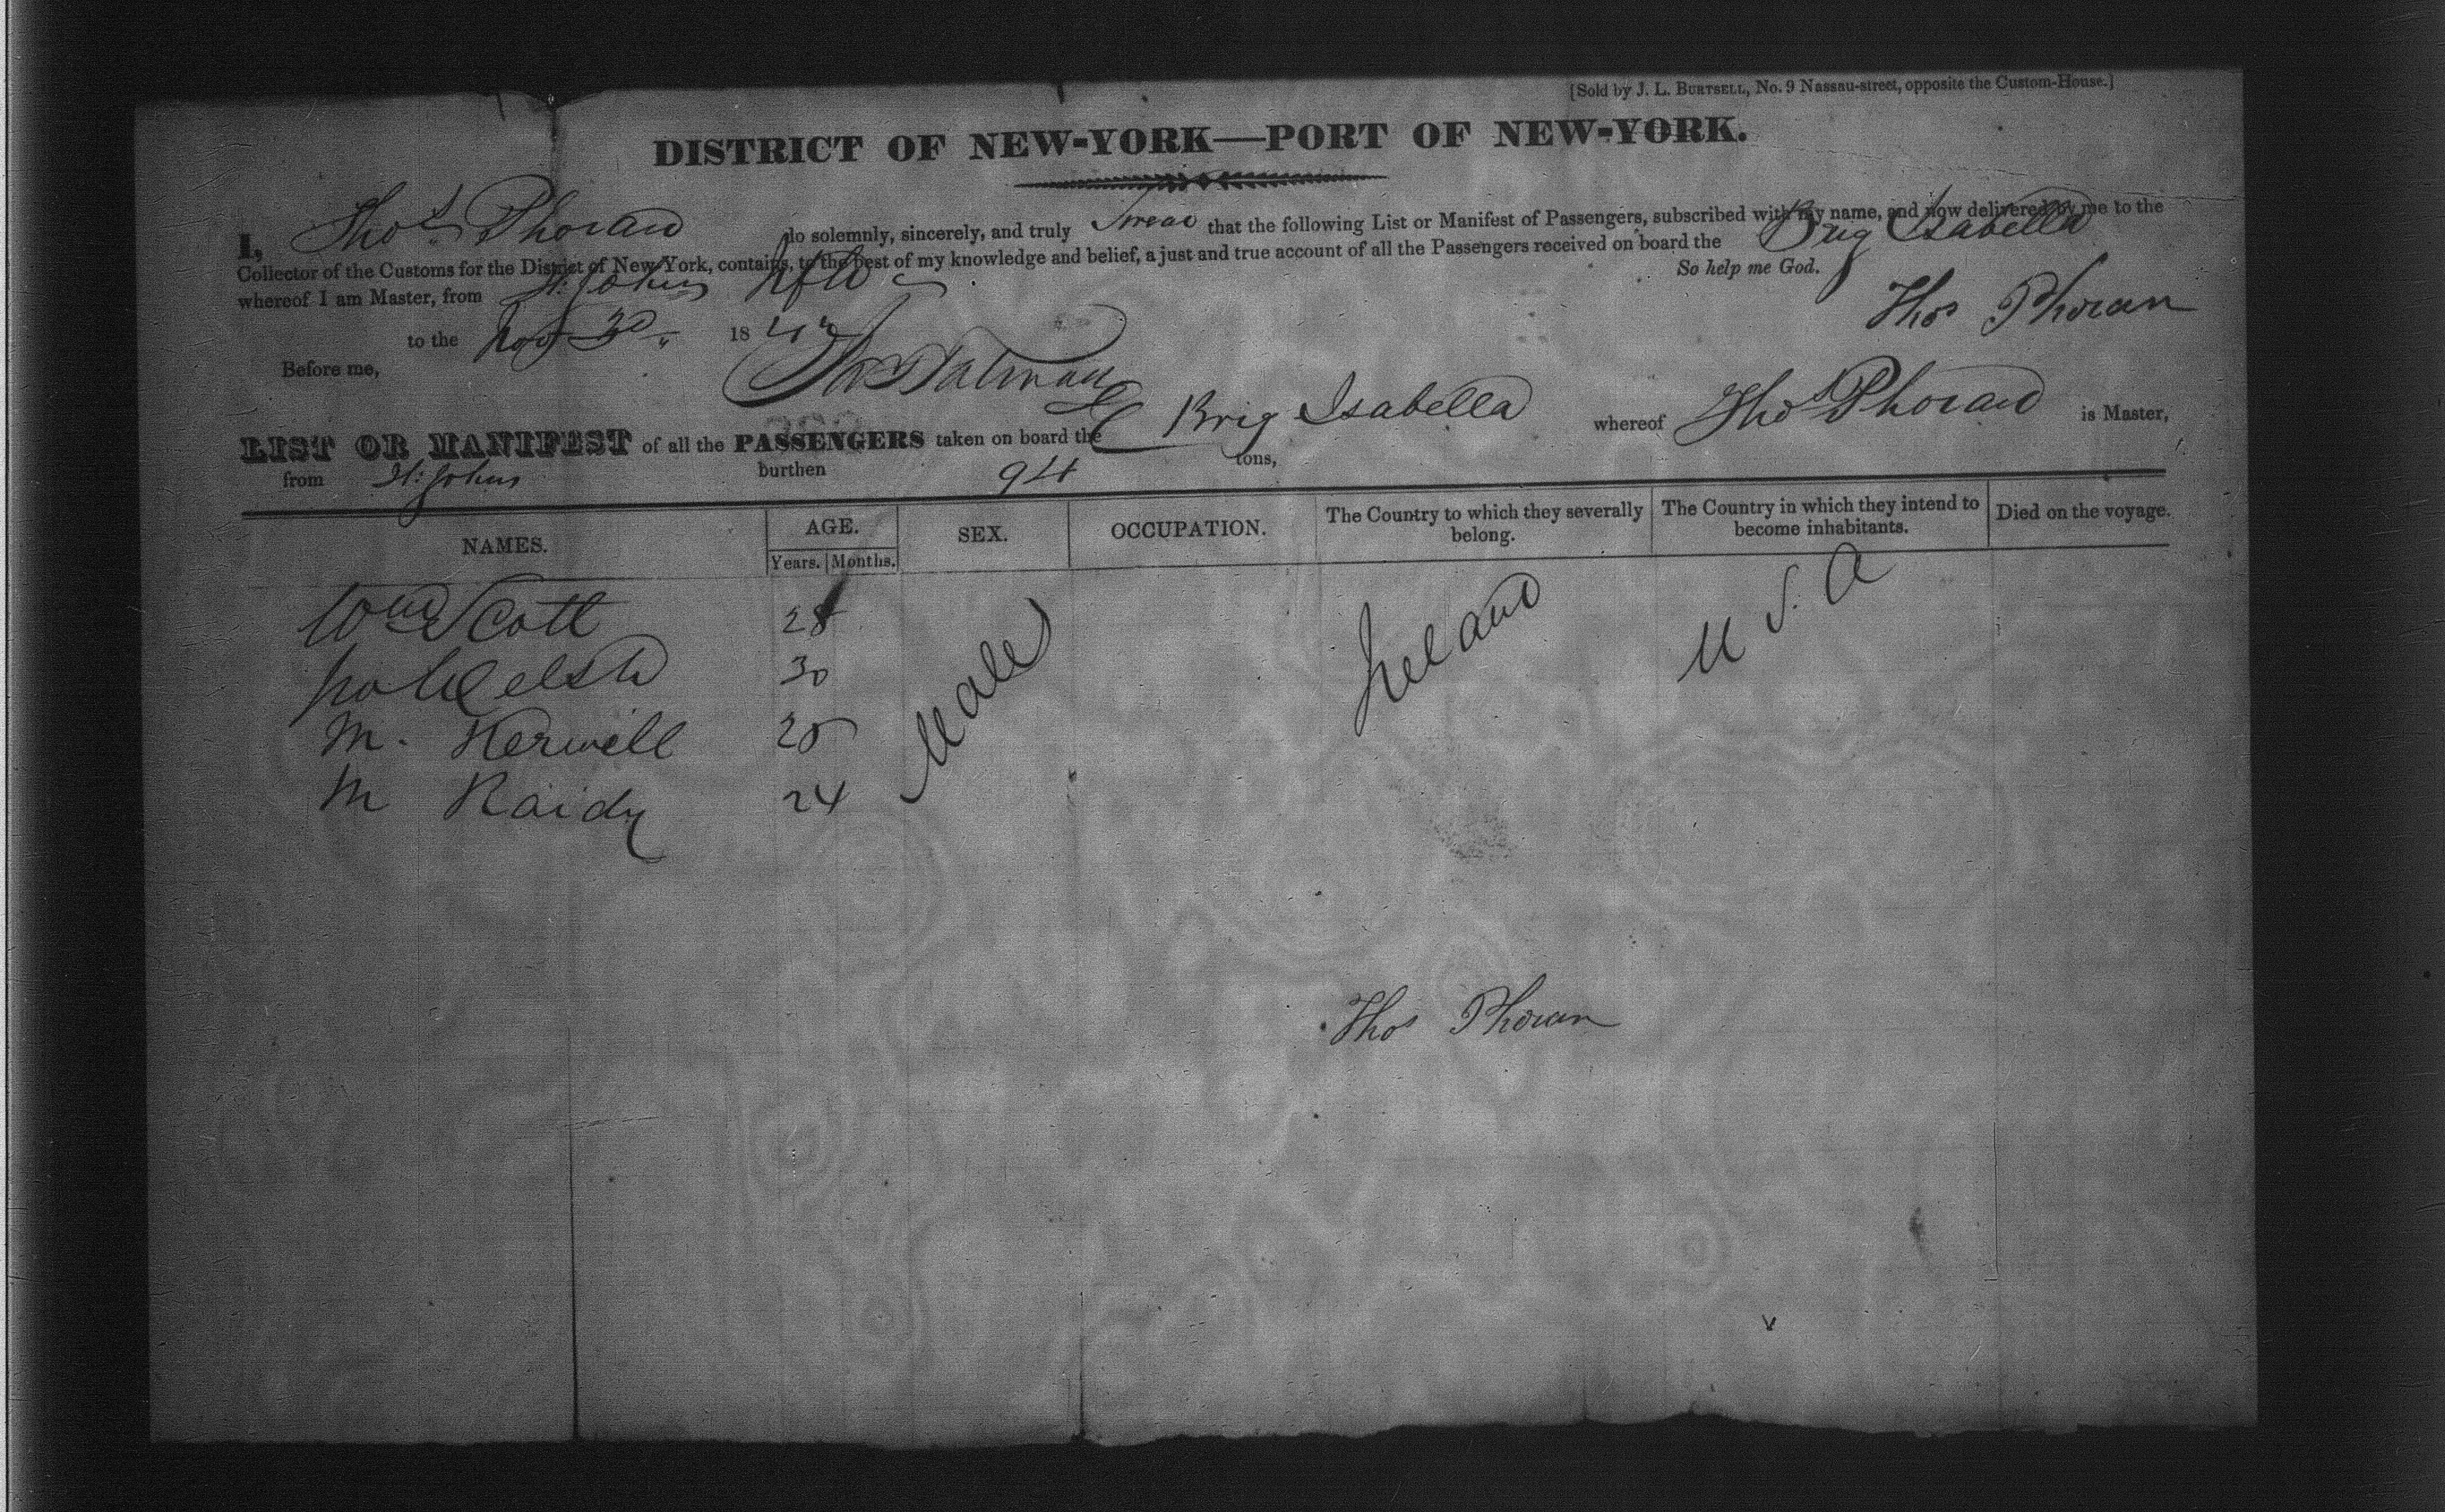 [Sold by J. L. BURTSELL, No. 9 Nassau-street, opposite the Custom-House.]
DISTRICT OF NEW-YORK—PORT OF NEW-YORK.
I, Thos Phoran do solemnly, sincerely, and truly Swear that the following List or Manifest of Passengers, subscribed with my name, and now delivered by me to the
Collector of the Customs for the District of New York, contains, to the best of my knowledge and belief, a just and true account of all the Passengers received on board the Brig Isabella
whereof I am Master, from St. Johns Nfld So help me God.
to the Nov 30 18 Thos Phoran
Before me,
LIST OR MANIFEST of all the PASSENGERS taken on board the Brig Isabella whereof Thos Phoran is Master,
from St. Johns burthen 94 tons,
NAMES. AGE. SEX. OCCUPATION. The Country to which they severally belong. The Country in which they intend to become inhabitants. Died on the voyage.
Years. Months.
Wm Scott 28 Male Ireland U S. A
Jno Welsh 30
M. Kerwell 25
M Raidy 24
Thos Phoran